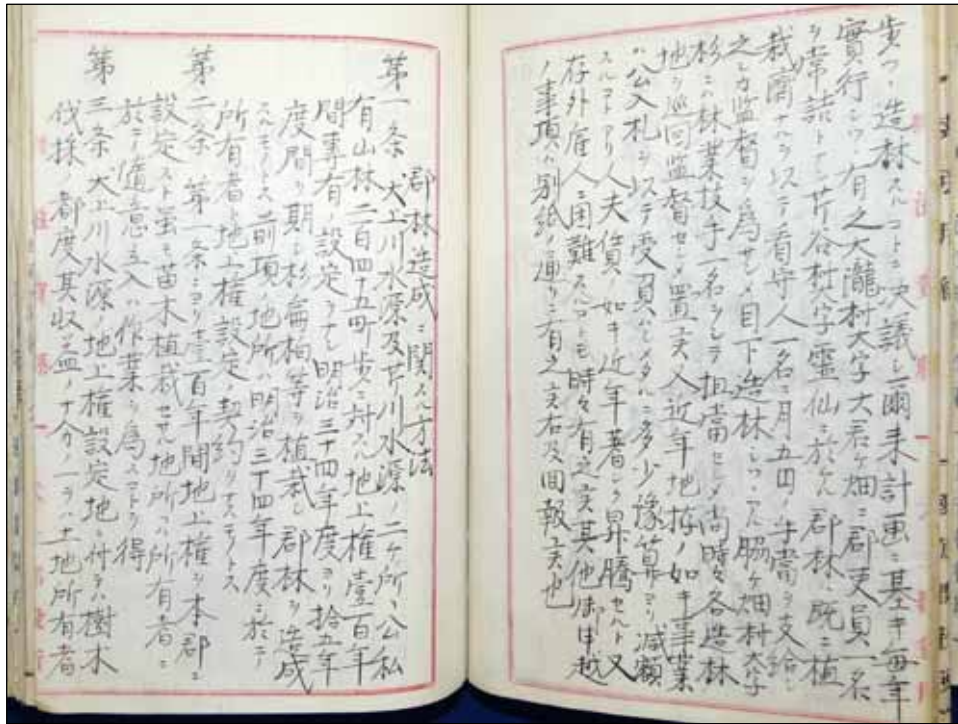 歩ツヽ造林スルコトニ決議シ爾来計画ニ基キ毎年
実行シツヽ有之大瀧村大字大君ケ畑ニ郡吏員一名
ヲ常詰トナシ芹谷村大字霊仙ニ於ケル郡林ハ既ニ植
栽済ナルヲ以テ看守人一名ニ月五円ノ手当ヲ支給シ
之レカ監督ヲ為サシメ目下造林シツヽアル脇ケ畑村大字
杉ニハ林業技手一名ヲシテ担当セシメ尚時々各造林
地ヲ巡回監督セシメ置候又近年地拵ノ如キ事業
ハ公入札ヲ以テ受負ハシメタルニ多少予算ヨリ減額
スルコトアリ人夫賃ノ如キ近年著シク昇騰セルト又
存外雇人ニ困難スルコトモ時々有之候其他御申越
ノ事項ハ別紙ノ通リニ有之候右及回報候也
郡林造成ニ関スル方法
第一条 犬上川水源及芹川水源ノ二ケ所ヘ公私
有山林二百四十五町歩ニ対スル地上権壱百年
間専有ノ設定ヲナシ明治三十四年度ヨリ拾五年
度間ヲ期シ杉扁柏等ヲ植栽シ郡林ヲ造成
スルモノトス前項ノ地所ハ明治三十四年度ニ於テ
所有者ト地上権設定ノ契約ヲナスモノトス
第二条 第一条ニヨリ壱百年間地上権ヲ本郡ニ
設定スト雖モ苗木植栽セサル地所ハ所有者ニ
於テ随意立入ハ作業ヲ為スコトヲ得
第三条 犬上川水源ノ地上権設定地ニ付テハ樹木
伐採ノ都度其収益ノ十分ノ一ヲ土地所有者